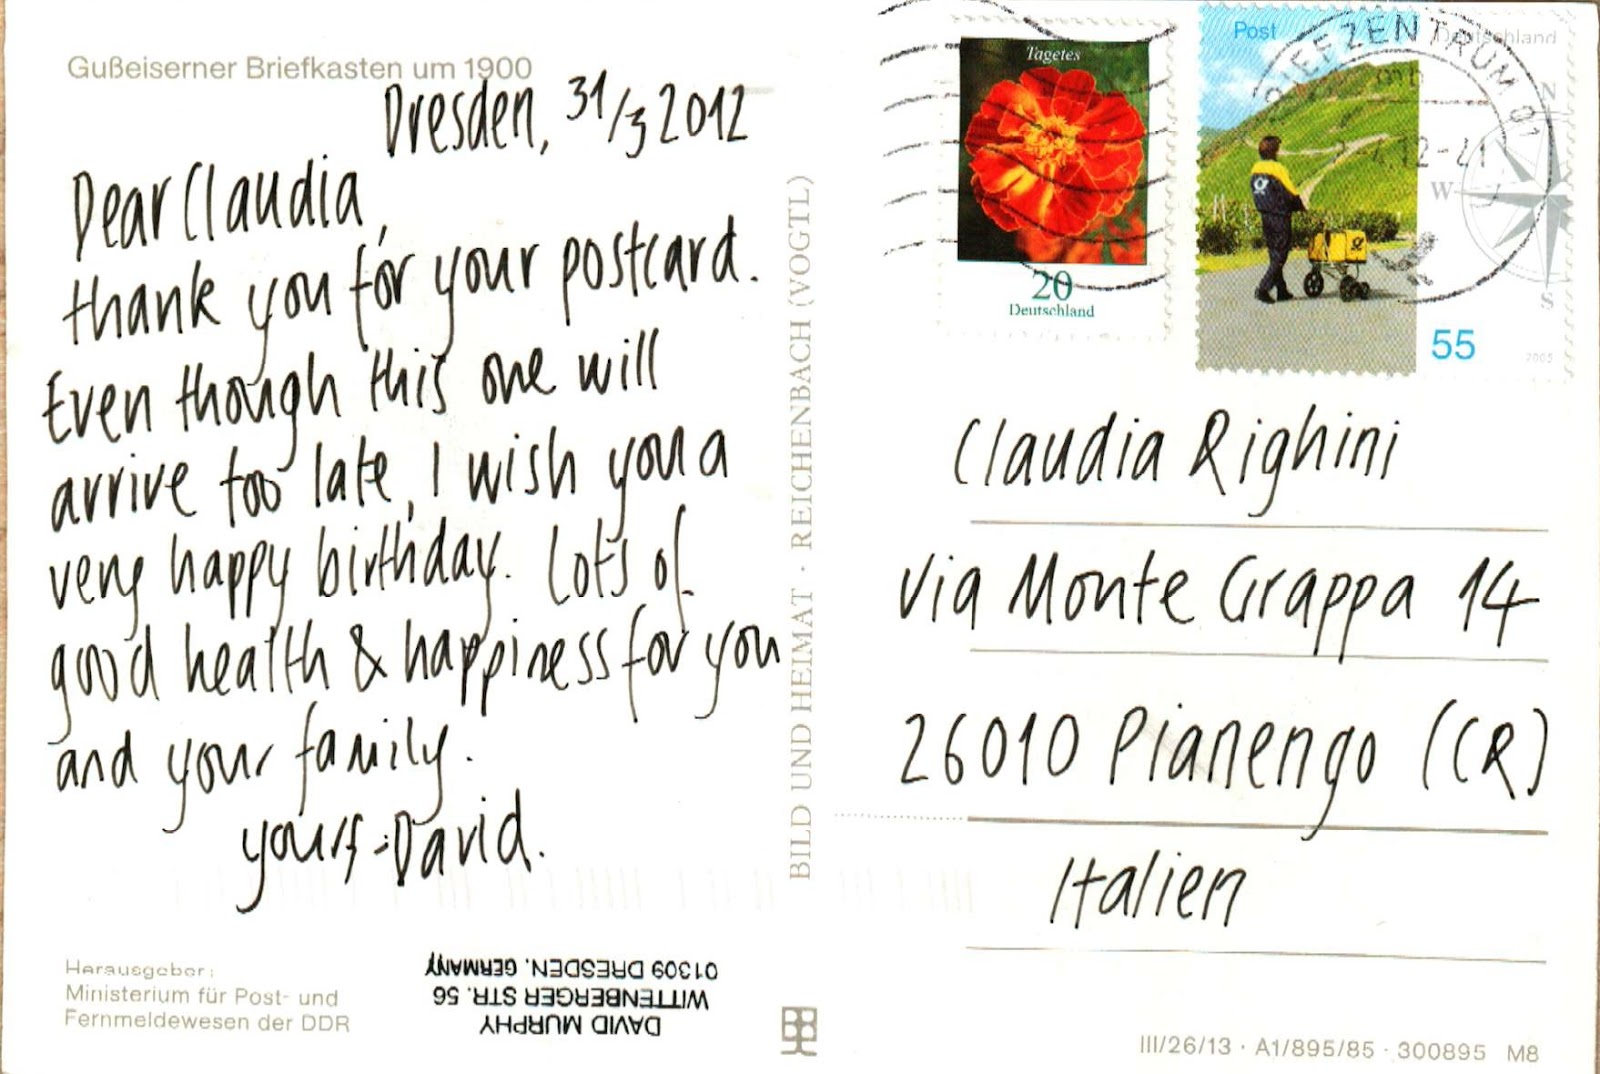 Gußeiserner Briefkasten um 1900
Dresden, 31/3 2012
Dear Claudia,
thank you for your postcard.
Even though this one will
arrive too late, I wish you a
very happy birthday. Lots of
good health & happiness for you
and your family.
yours - David.
Herausgeber:
Ministerium für Post- und
Fernmeldewesen der DDR
DAVID MURPHY
WITTENBERGER STR. 56
01309 DRESDEN. GERMANY
BILD UND HEIMAT · REICHENBACH (VOGTL)
Tagetes
20
Deutschland
Post
Deutschland
N
W
S
55
2005
BRIEFZENTRUM 01
Claudia Righini
Via Monte Grappa 14
26010 Pianengo (CR)
Italien
III/26/13 · A1/895/85 · 300895 M8